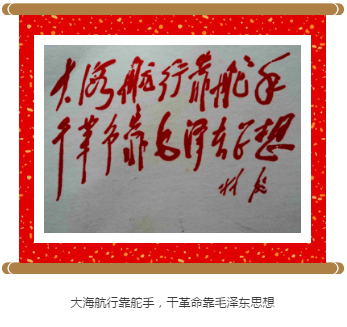 大海航行靠舵手
干革命靠毛泽东思想
林彪
大海航行靠舵手，干革命靠毛泽东思想